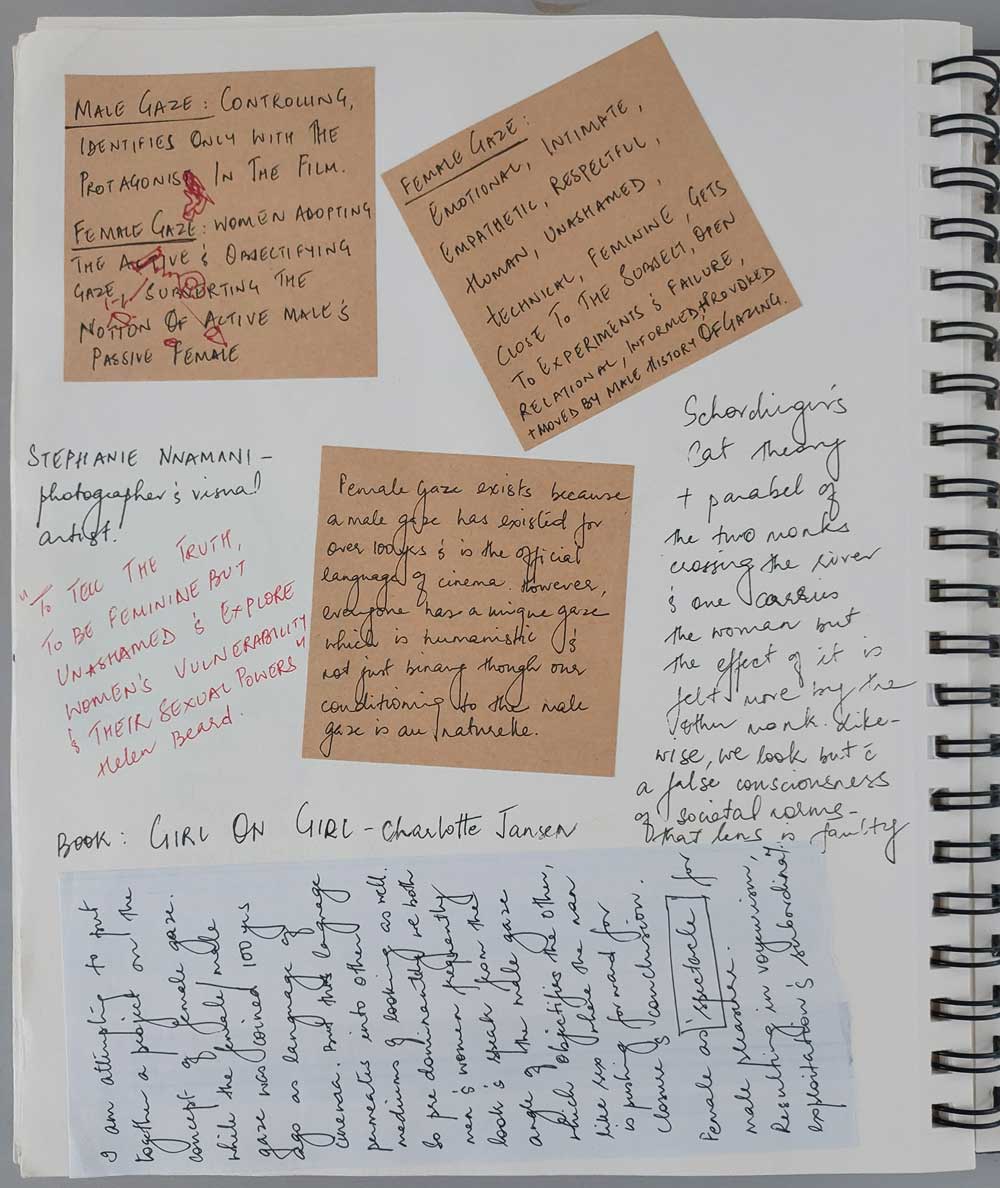 MALE GAZE: CONTROLLING,
IDENTIFIES ONLY WITH THE
PROTAGONIST IN THE FILM.
FEMALE GAZE: WOMEN ADOPTING
THE ACTIVE & OBJECTIFYING
GAZE, SUBVERTING THE
NOTION OF ACTIVE MALE &
PASSIVE FEMALE
FEMALE GAZE:
EMOTIONAL, INTIMATE,
EMPATHETIC, RESPECTFUL,
HUMAN, UNASHAMED,
TECHNICAL, FEMININE, GETS
CLOSE TO THE SUBJECT, OPEN
TO EXPERIMENTS & FAILURE,
RELATIONAL, INFORMED, PROVOKED
+ MOVED BY MALE HISTORY OF GAZING.
STEPHANIE NNAMANI -
photographer & visual
artist.
"TO TELL THE TRUTH,
TO BE FEMININE BUT
UNASHAMED & EXPLORE
WOMEN'S VULNERABILITY
& THEIR SEXUAL POWERS"
Helen Beard.
Female gaze exists because
a male gaze has existed for
over 100yrs & is the official
language of cinema. However,
everyone has a unique gaze
which is humanistic &
not just binary though our
conditioning to the male
gaze is au naturelle.
Schordinger's
Cat theory
+ parabel of
the two monks
crossing the river
& one carries
the woman but
the effect of it is
felt more by the
other monk. Like-
wise, we look but c̄
a false consciousness
of societal norms -
that lens is faulty
BOOK: GIRL ON GIRL - Charlotte Jansen
I am attempting to put
together a project on the
concept of female gaze.
While the female/male
gaze was coined 100 yrs
ago as language of
cinema. But this language
permeates into other
mediums of looking as well.
So predominantly we both
men & women frequently
look & speak from the
angle of the male gaze
which objectifies the other,
like sex where the man
is pushing forward for
closure & conclusion.
Female as spectacle for
male pleasure.
Resulting in voyurism,
exploitation & subordinacy.